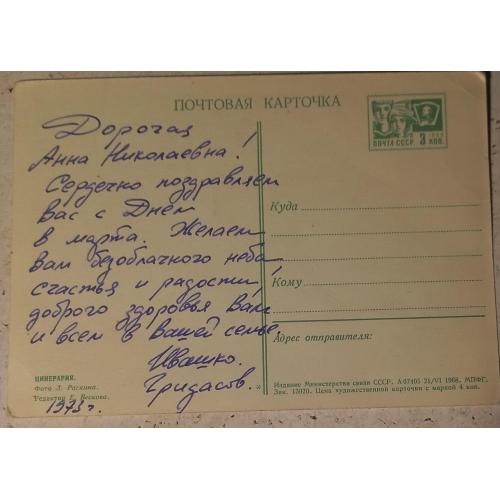 ПОЧТОВАЯ КАРТОЧКА
ПОЧТА СССР 3 КОП.
Дорогая
Анна Николаевна!
Сердечно поздравляем
Вас с Днём
8 марта. Желаем
Вам безоблачного неба
счастья и радости!
доброго здоровья Вам
и всем в Вашей семье.
Ивашко.
Гридасов.
1973 г.
Куда
Кому
Адрес отправителя:
ЦИНЕРАРИЯ.
Фото Л. Раскина.
Редактор Е. Вескова.
Издание Министерства связи СССР. А 07405 21/VI 1968. МПФГ.
Зак. 13020. Цена художественной карточки с маркой 4 коп.